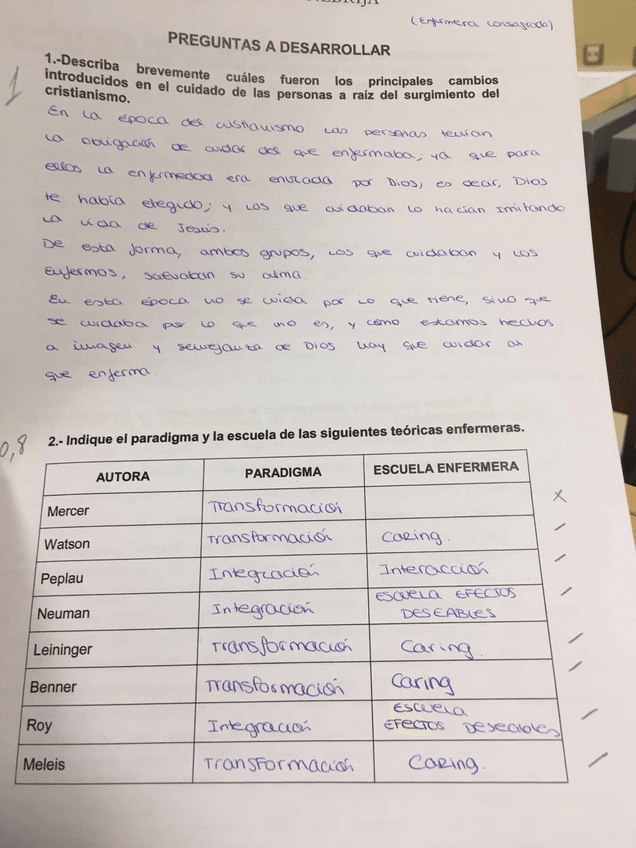 (Enfermera consagrada)
PREGUNTAS A DESARROLLAR
1.-Describa brevemente cuáles fueron los principales cambios
introducidos en el cuidado de las personas a raíz del surgimiento del
cristianismo.
1
En la época del cristianismo las personas tenían
la obligación de cuidar del que enfermaba; ya que para
ellos la enfermedad era enviada por Dios, es decir, Dios
te había elegido; y los que cuidaban lo hacían imitando
la vida de Jesús.
De esta forma, ambos grupos, los que cuidaban y los
enfermos, salvaban su alma.
En esta época no se cuida por lo que tiene, sino que
se cuidaba por lo que uno es, y como estamos hechos
a imagen y semejanza de Dios hay que cuidar al
que enferma.
0,8
2.- Indique el paradigma y la escuela de las siguientes teóricas enfermeras.
AUTORA PARADIGMA ESCUELA ENFERMERA
Mercer Transformación
Watson Transformación Caring.
Peplau Integración Interacción
Neuman Integración ESCUELA EFECTOS
DESEABLES
Leininger Transformación Caring.
Benner Transformación Caring
Roy Integración ESCUELA
EFECTOS DESEABLES
Meleis Transformación Caring.